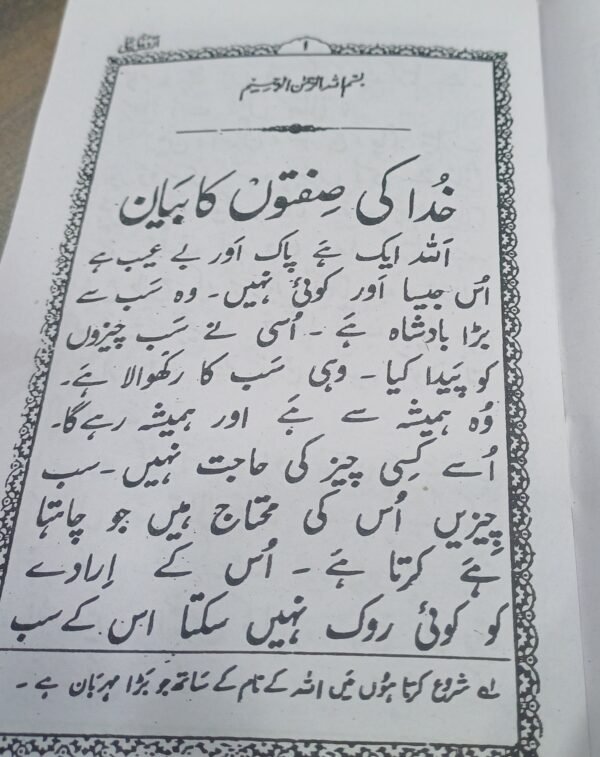 ۱
بسم اللہ الرحمٰن الرحیم
خُدا کی صِفتوں کا بَیان
اَللہ ایک ہَے پاک اَور بے عیب ہے
اُس جیسا اَور کوئی نہیں۔ وہ سَب سے
بڑا بادشاہ ہَے ۔ اُسی نے سَب چیزوں
کو پَیدا کیا ۔ وہی سَب کا رکھوالا ہَے۔
وُہ ہمیشہ سے ہَے اور ہمیشہ رہے گا۔
اُسے کِسی چیز کی حاجت نہیں ۔ سب
چیزیں اُس کی محتاج ہیں جو چاہتا
ہَے کرتا ہَے ۔ اُس کے اِرادے
کو کوئی روک نہیں سکتا اس کے سب
لے شروع کرتا ہُوں مَیں اللہ کے نام کے ساتھ جو بَڑا مہربان ہے ۔